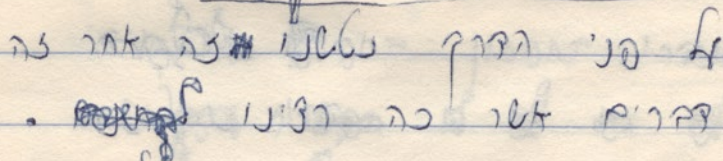 על פני הדרך נטשנו זה אחר זה
דברים אשר כה רצינו .